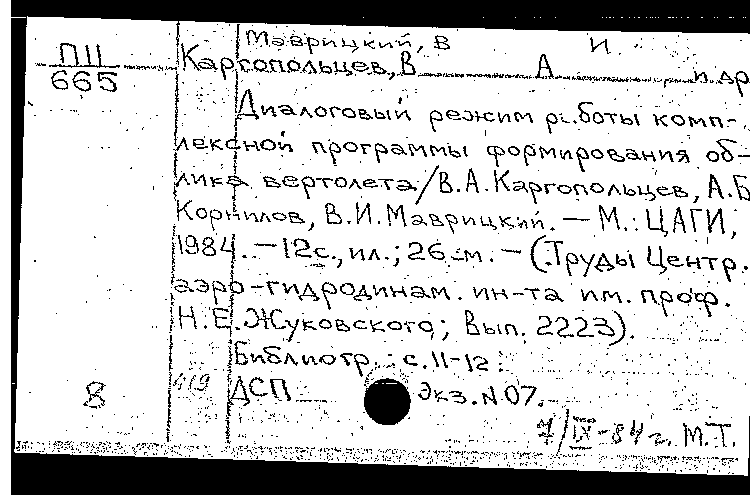 Маврицкий, В И.
ПII
665
Каргопольцев, В А и др
Диалоговый режим работы комп-
лексной программы формирования об-
лика вертолета / В.А. Каргопольцев, А.Б
Корнилов, В.И. Маврицкий. — М.: ЦАГИ,
1984. — 12с., ил.; 26 см. — (Труды Центр.
аэро-гидродинам. ин-та им. проф.
Н.Е. Жуковского; Вып. 2223).
Библиогр.: с. 11-12.
8 ДСП Экз. N 07.
7/IX-84 г. М.Т.